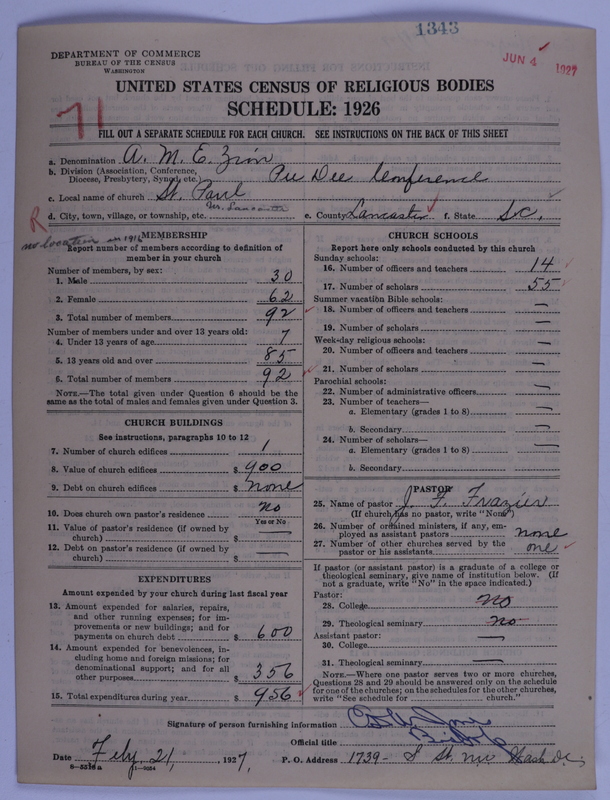 1343
JUN 4 1927
DEPARTMENT OF COMMERCE
BUREAU OF THE CENSUS
WASHINGTON
UNITED STATES CENSUS OF RELIGIOUS BODIES
SCHEDULE: 1926
71
FILL OUT A SEPARATE SCHEDULE FOR EACH CHURCH. SEE INSTRUCTIONS ON THE BACK OF THIS SHEET
a. Denomination A. M. E. Zion
b. Division (Association, Conference,
Diocese, Presbytery, Synod, etc.) Pee Dee Conference
c. Local name of church St. Paul
d. City, town, village, or township, etc. Nr. Lancaster e. County Lancaster f. State S.C.
R
no location in 1916
MEMBERSHIP
Report number of members according to definition of
member in your church
Number of members, by sex:
1. Male 30
2. Female 62
3. Total number of members 92
Number of members under and over 13 years old:
4. Under 13 years of age 7
5. 13 years old and over 85
6. Total number of members 92
NOTE.—The total given under Question 6 should be
same as the total of males and females given under Question 3.
CHURCH BUILDINGS
See instructions, paragraphs 10 to 12
7. Number of church edifices 1
8. Value of church edifices $ 900
9. Debt on church edifices $ none
10. Does church own pastor's residence? no
Yes or No
11. Value of pastor's residence (if owned by
church) $ —
12. Debt on pastor's residence (if owned by
church) $ —
EXPENDITURES
Amount expended by your church during last fiscal year
13. Amount expended for salaries, repairs,
and other running expenses; for im-
provements or new buildings; and for
payments on church debt $ 600
14. Amount expended for benevolences, in-
cluding home and foreign missions; for
denominational support; and for all
other purposes $ 356
15. Total expenditures during year $ 956
CHURCH SCHOOLS
Report here only schools conducted by this church
Sunday schools:
16. Number of officers and teachers 14
17. Number of scholars 55
Summer vacation Bible schools:
18. Number of officers and teachers —
19. Number of scholars —
Week-day religious schools:
20. Number of officers and teachers —
21. Number of scholars —
Parochial schools:
22. Number of administrative officers —
23. Number of teachers—
a. Elementary (grades 1 to 8) —
b. Secondary —
24. Number of scholars—
a. Elementary (grades 1 to 8) —
b. Secondary
PASTOR
25. Name of pastor J. F. Frazier
(If church has no pastor, write "None")
26. Number of ordained ministers, if any, em-
ployed as assistant pastors none
27. Number of other churches served by the
pastor or his assistants one
If pastor (or assistant pastor) is a graduate of a college or
theological seminary, give name of institution below. (If
not a graduate, write "No" in the space indicated.)
Pastor:
28. College no
29. Theological seminary no
Assistant pastor:
30. College —
31. Theological seminary —
NOTE.—Where one pastor serves two or more churches,
Questions 28 and 29 should be answered only on the schedule
for one of the churches; on the schedules for the other churches,
write "See schedule for church."
Signature of person furnishing information
Official title Bishop
Date Feby. 21, 1927, P. O. Address 1739- S St. NW Wash D.C.
8—5316a